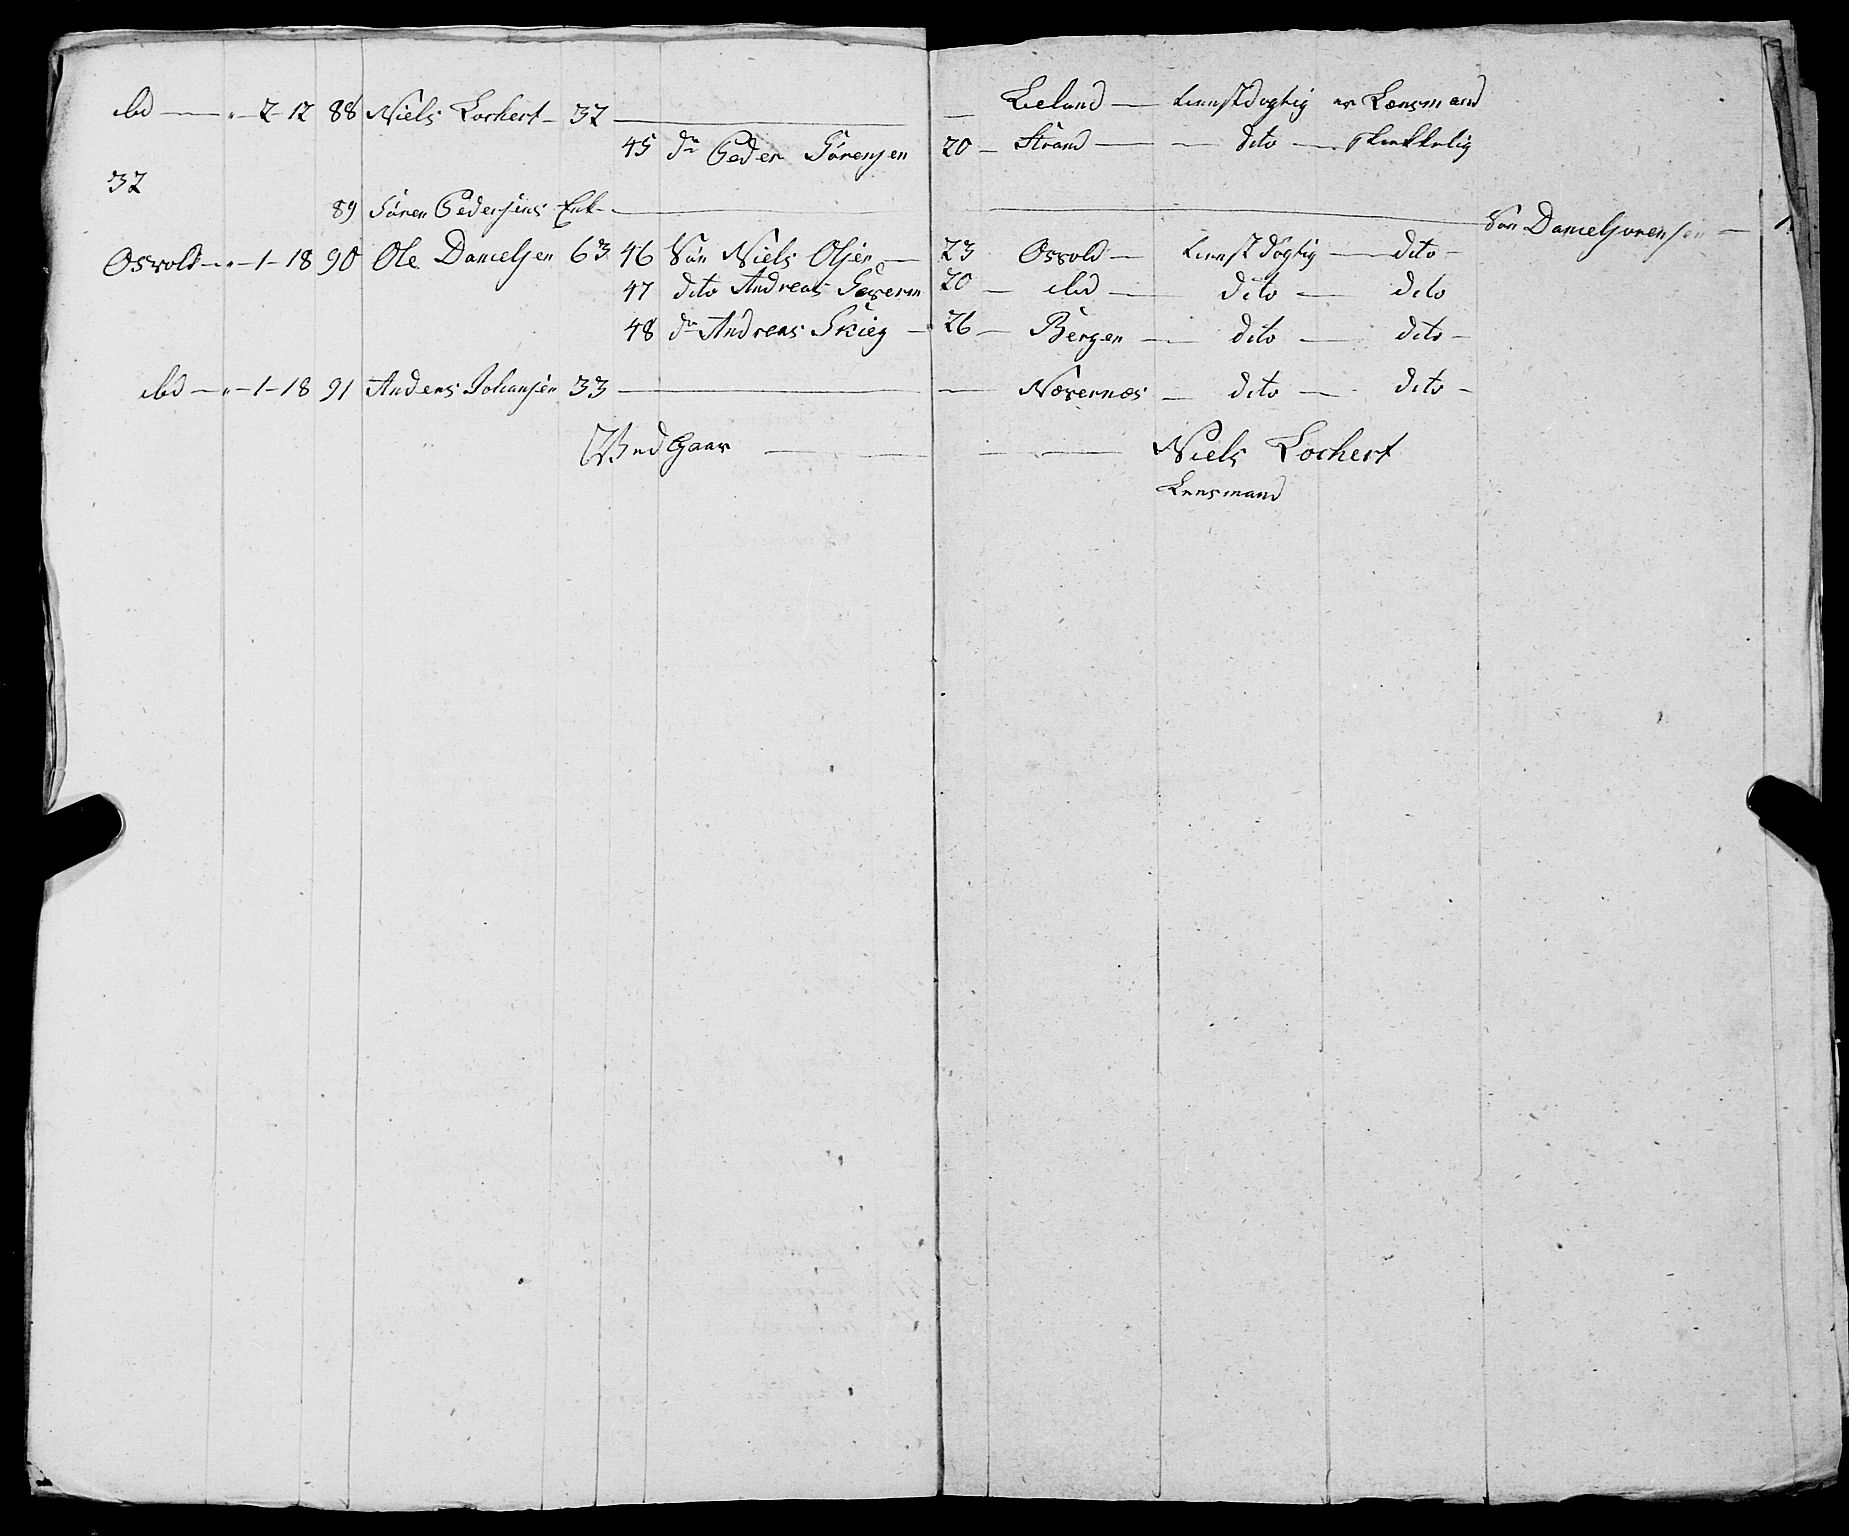 ibd — " — 2 — 12 88 Niels Lochert — 37 — Lieland — tienstdygtig er Lænsmand
45 do Peder Sörensen 20 — Strand — dito — skikkelig
37
89 Sören Pedersens Enk — Sön Daniel Sørensen — 1
Osvold — " — 1 — 18 90 Ole Danielsen 63 46 Sön Niels Olsen — 23 Osvold — tienstdygtig — dito —
47 dito Andreas Severin 20 — ibd — dito — dito
48 do Andreas Skieg — 26 — Bergen — dito — dito —
ibd — " — 1 — 18 91 Anders Johansen 33 — Nævernæs — dito — dito —
Vedgaar — Niels Lochert
Lensmand